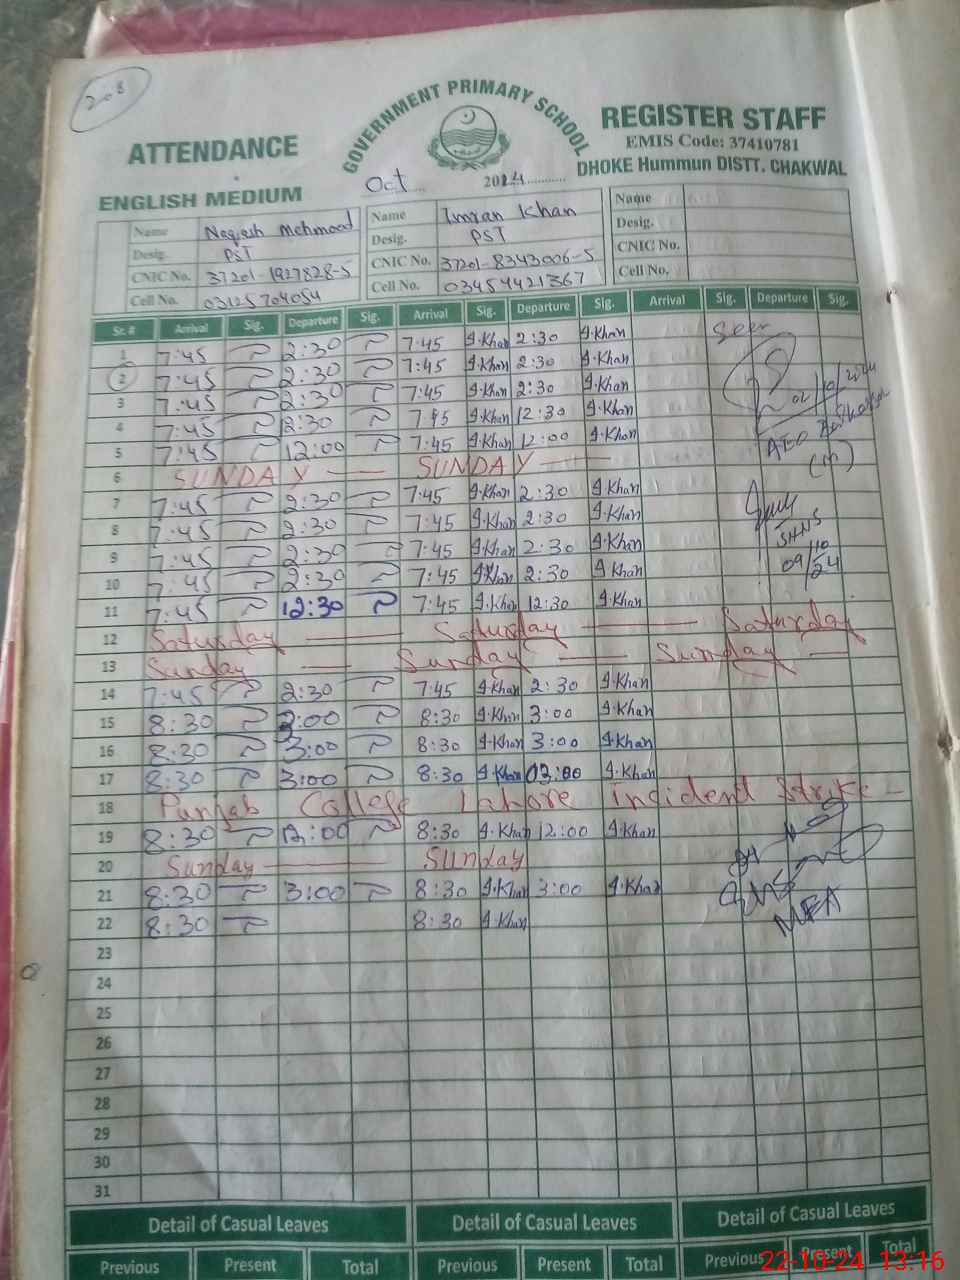 208
GOVERNMENT PRIMARY SCHOOL
ATTENDANCE REGISTER STAFF
EMIS Code: 37410781
ENGLISH MEDIUM DHOKE Hummun DISTT. CHAKWAL
Oct 2024
Name Mehmood Name Imran Khan Name
Desig. PST Desig. PST Desig.
CNIC No. 37201-1927828-5 CNIC No. 37201-8343006-5 CNIC No.
Cell No. 03125704054 Cell No. 03454421367 Cell No.
Sr. # Arrival Sig. Departure Sig. Arrival Sig. Departure Sig. Arrival Sig. Departure Sig.
1 7:45 2:30 7:45 I.Khan 2:30 I.Khan Seen
2 7:45 2:30 7:45 I.Khan 2:30 I.Khan
3 7:45 2:30 7:45 I.Khan 2:30 I.Khan 02/10/2024
4 7:45 2:30 7:45 I.Khan 12:30 I.Khan
5 7:45 12:00 7:45 I.Khan 12:00 I.Khan AEO (M)
6 SUNDAY — SUNDAY —
7 7:45 2:30 7:45 I.Khan 2:30 I.Khan
8 7:45 2:30 7:45 I.Khan 2:30 I.Khan
9 7:45 2:30 7:45 I.Khan 2:30 I.Khan SHNS
10 7:45 2:30 7:45 I.Khan 2:30 I.Khan 09/10/24
11 7:45 12:30 7:45 I.Khan 12:30 I.Khan
12 Saturday — Saturday — Saturday
13 Sunday — Sunday — Sunday —
14 7:45 2:30 7:45 I.Khan 2:30 I.Khan
15 8:30 3:00 8:30 I.Khan 3:00 I.Khan
16 8:30 3:00 8:30 I.Khan 3:00 I.Khan
17 8:30 3:00 8:30 I.Khan 03:00 I.Khan
18 Punjab College Lahore Incident Strike —
19 8:30 12:00 8:30 I.Khan 12:00 I.Khan
20 Sunday — Sunday
21 8:30 3:00 8:30 I.Khan 3:00 I.Khan
22 8:30 8:30 I.Khan MEA
23
24
25
26
27
28
29
30
31
Detail of Casual Leaves Detail of Casual Leaves Detail of Casual Leaves
Previous Present Total Previous Present Total Previous Present Total
22-10-24 13:16